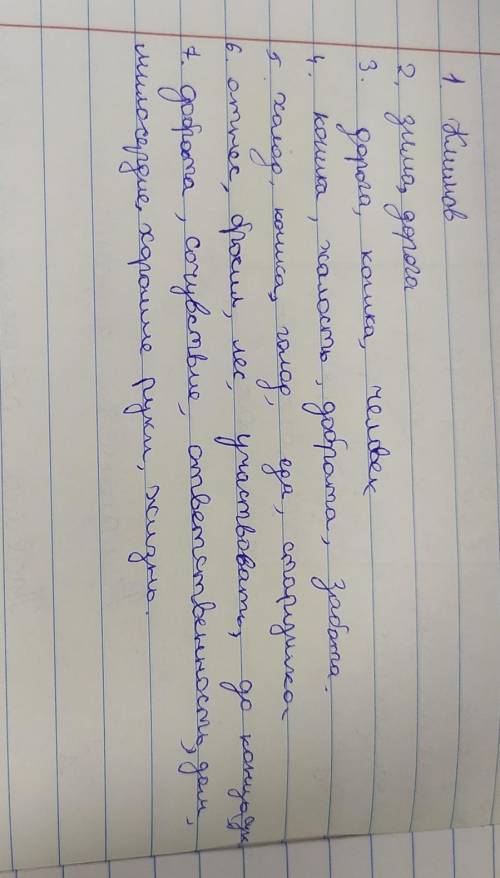 1. Климов
2, зима, дорога
3. дорога, кошка, человек
4. кошка, жалость, доброта, забота.
5. холод, кошка, голод, еда, старушка
6. отнес, бросил, лес, участвовать, до конца
7. доброта, сочувствие, ответственность, дом,
милосердие, хорошие руки, жизнь.